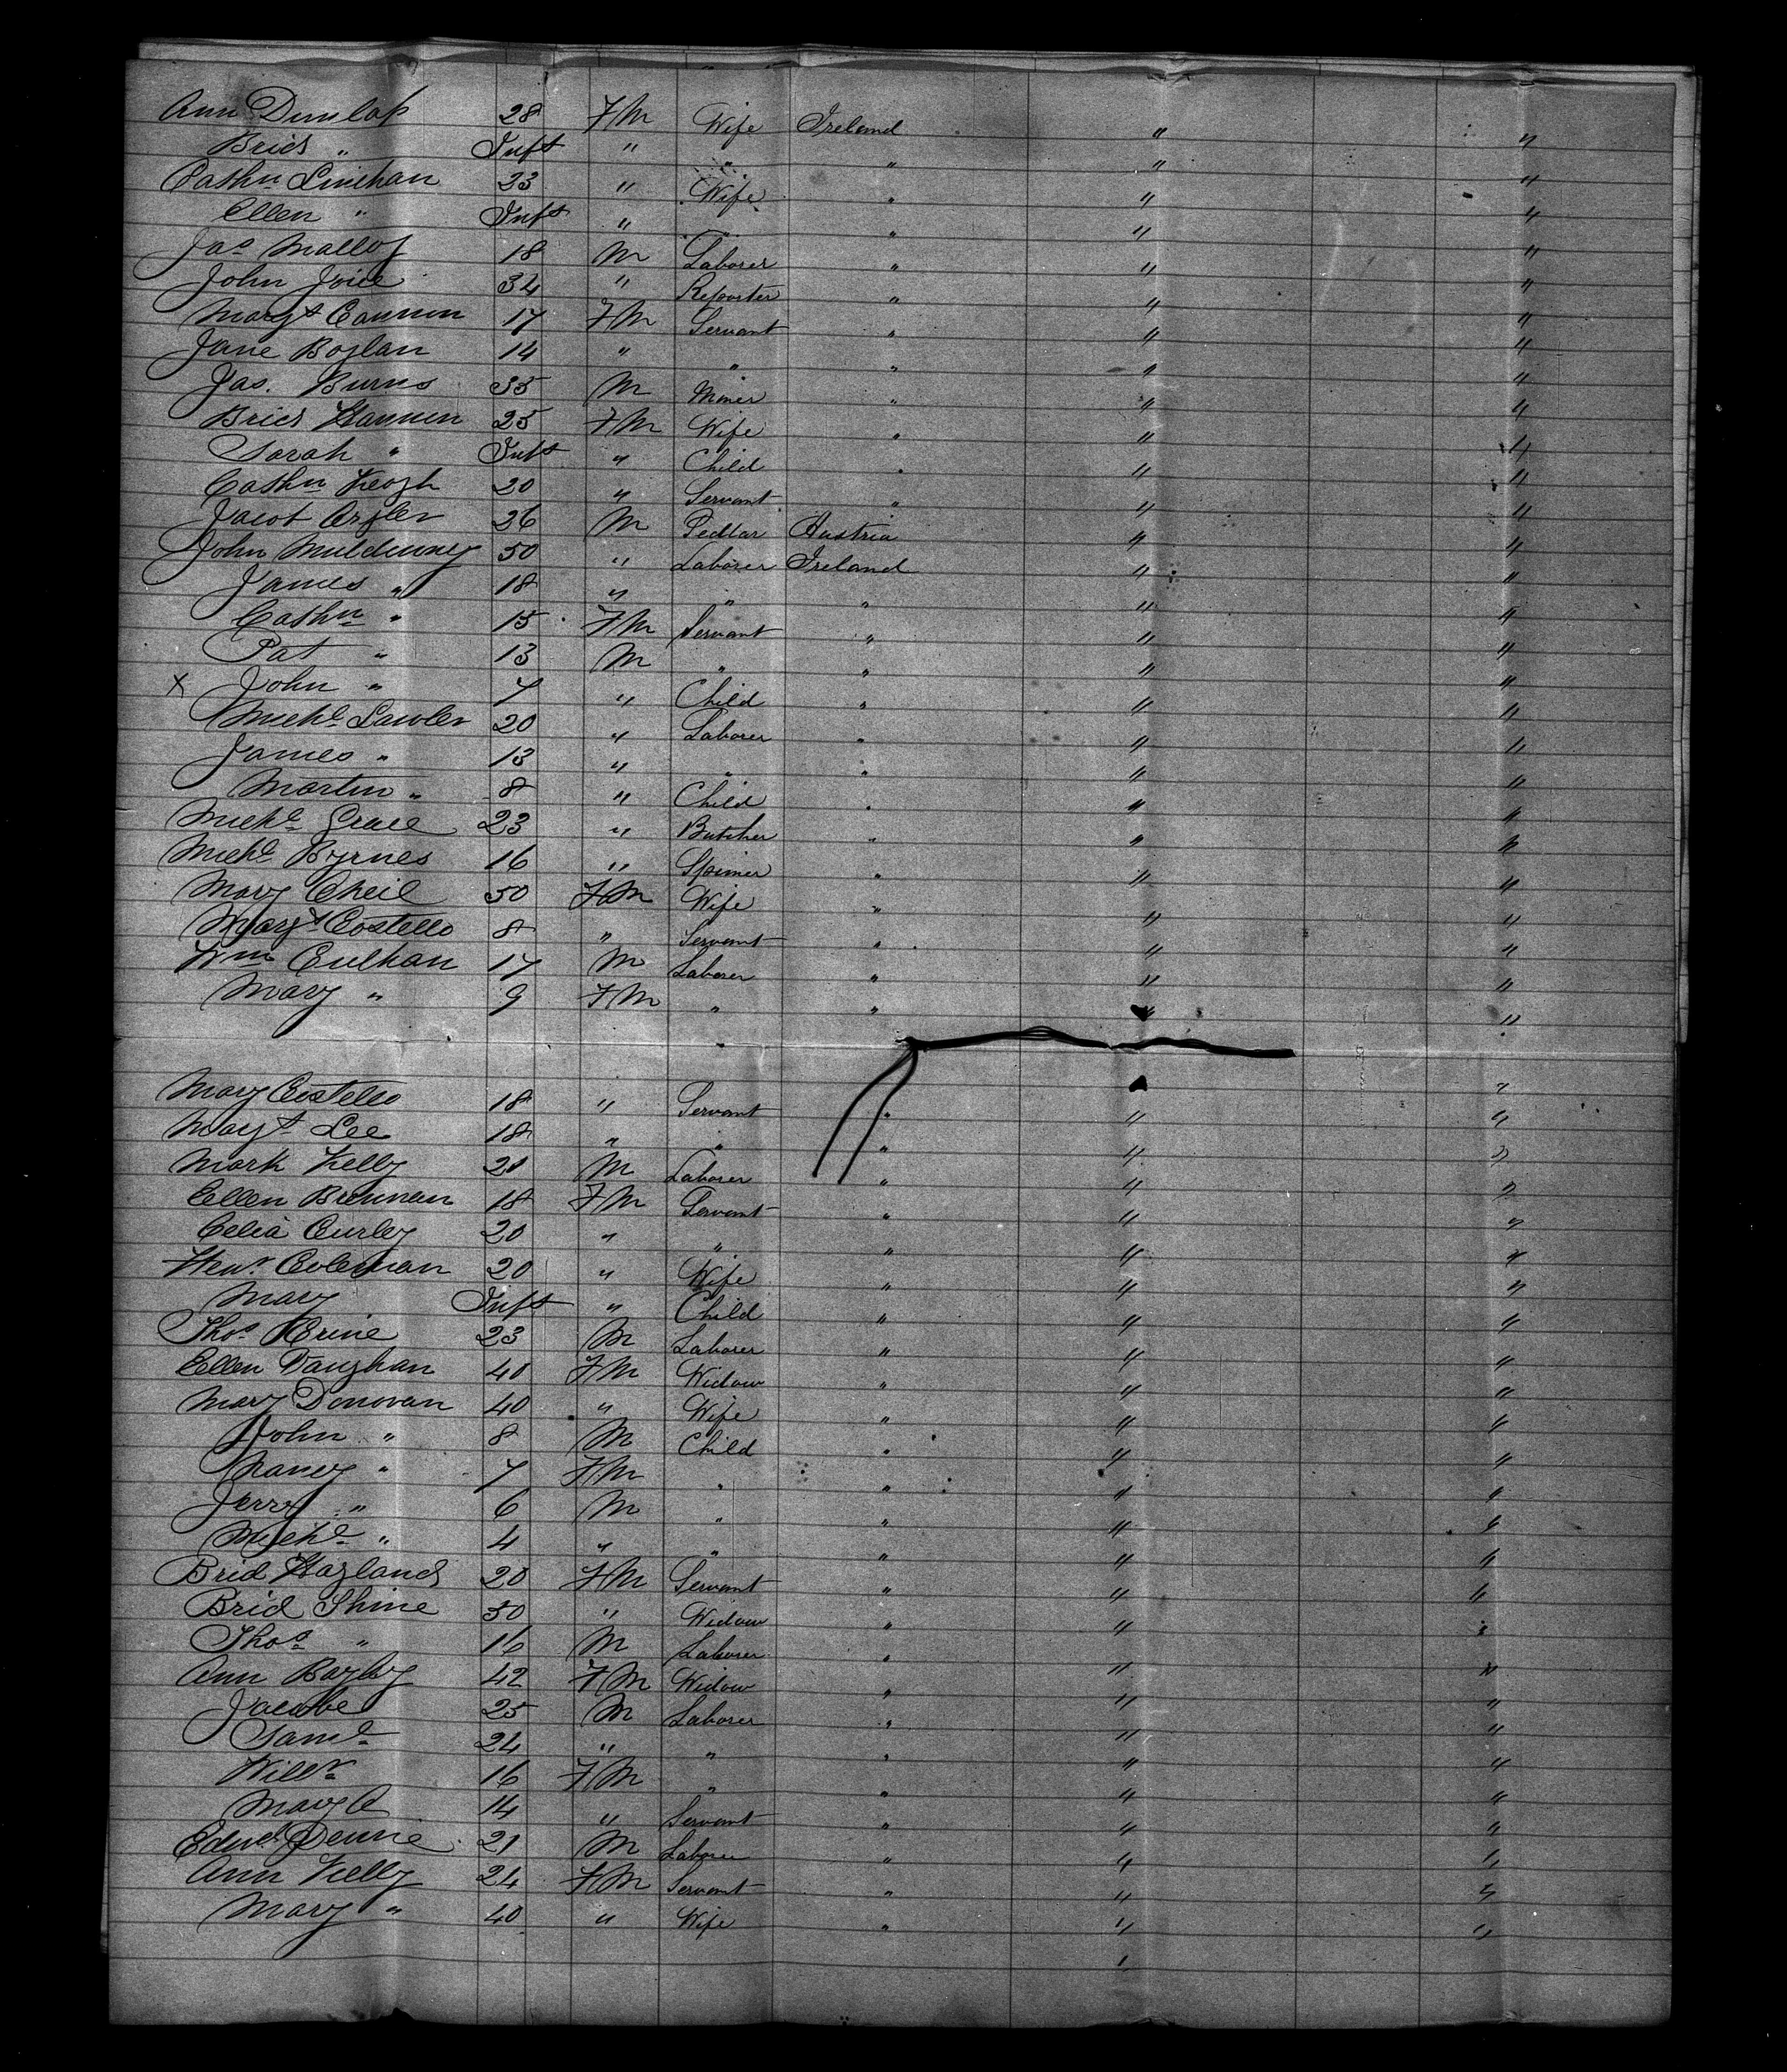 Ann Dunlap 28 FM Wife Ireland " "
Brid " Inft " " " " "
Cathn Linehan 23 " Wife " " "
Ellen " Inft " " " " "
Jas Malloy 18 M Laborer " " "
John Joice 34 " Reporter " " "
Margt Cannon 17 FM Servant " " "
Jane Boylan 14 " " " " "
Jas. Burns 35 M Miner " " "
Brid Hannen 25 FM Wife " " "
Sarah " Inft " Child " " "
Cathn Keogh 20 " Servant " " "
Jacob 26 M Pedlar Austria " "
John Muldowney 50 " Laborer Ireland " "
James " 18 " " " " "
Cathn " 15 FM Servant " " "
Pat " 13 M " " " "
X John " 7 " Child " " "
Michl Lawler 20 " Laborer " " "
James " 13 " " " " "
Martin " 8 " Child " " "
Michl Grace 23 " Butcher " " "
Michl Byrnes 16 " " " "
Mary Oneil 50 FM Wife " " "
Margt Costello 8 " Servant " " "
Wm Culhan 17 M Laborer " " "
Mary " 9 FM " " " "
Mary Costello 18 " Servant " " "
Margt Lee 18 " " " " "
Mark Kelly 21 M Laborer " " "
Ellen Brennan 18 FM Servant " " "
Celia Curley 20 " " " " "
Coleman 20 " Wife " " "
Mary Inft " Child " " "
Thos 23 M Laborer " " "
Ellen Vaughan 40 FM Widow " " "
Mary Donovan 40 " Wife " " "
John " 8 M Child " " "
Nancy " 7 FM " " " "
Jerry " 6 M " " " "
Michl " 4 " " " " "
Brid 20 FM Servant " " "
Brid Shine 50 " Widow " " "
Thos " 16 M Laborer " " "
Ann 42 FM Widow " " "
Jacobe 25 M Laborer " " "
Saml 24 " " " " "
16 FM " " " "
Mary A 14 " Servant " " "
Edwd 21 M Laborer " " "
Ann Kelly 24 FM Servant " " "
Mary " 40 " Wife " " "